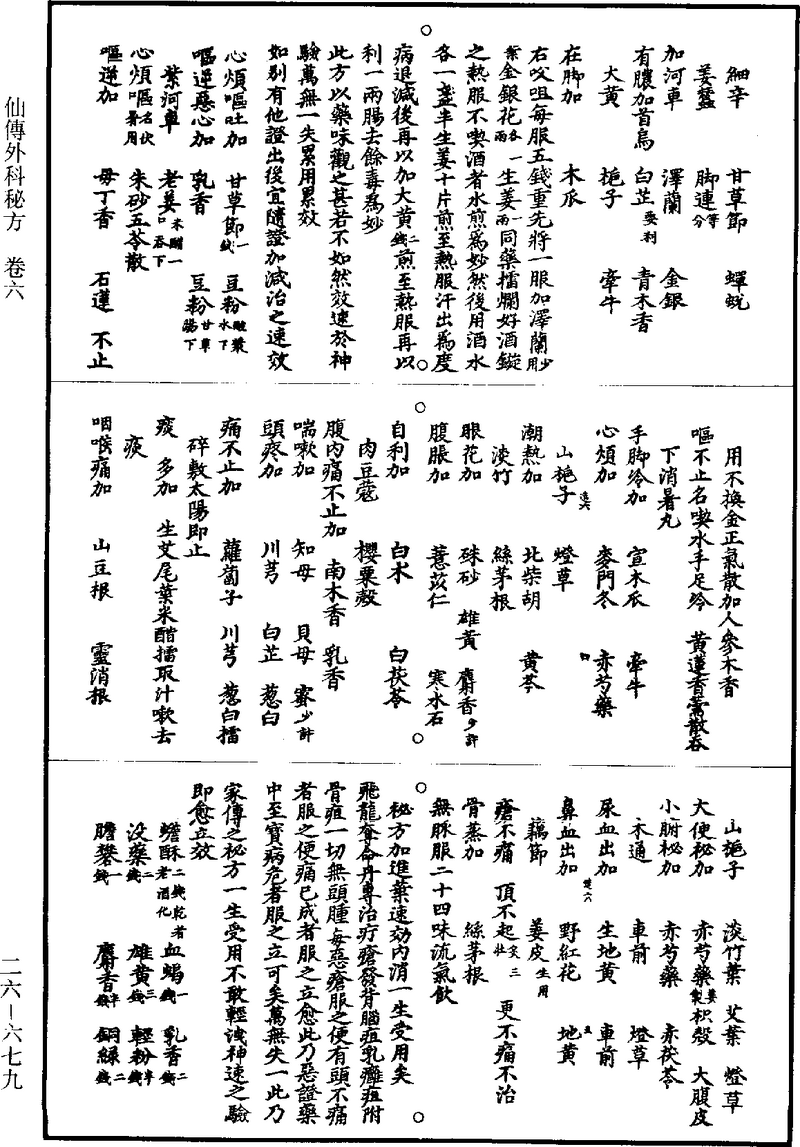 仙傳外科秘方　卷六
細辛　甘草節　蟬蛻
姜蠶　脚連等分
加河車　澤蘭　金銀
有膿加首烏　白芷要利　青木香
大黃　梔子　牽牛
在脚加　木瓜
右㕮咀每服五錢重先將一服加澤蘭少用
紫金銀花各一兩生姜一兩同藥擂爛好酒鏇
之熱服不喫酒者水煎爲妙然後用酒水
各一盞半生姜十片煎至熱服汗出爲度
病退減後再以加大黃二錢煎至熱服再以
利一兩腸去餘毒爲妙
此方以藥味觀之甚若不如然效速於神
驗萬無一失累用累效
如別有他證出後宜隨證加減治之速效
心煩嘔吐加　甘草節一錢　豆粉酸漿水下
嘔逆惡心加　乳香　豆粉甘草湯下
紫河車　老姜米醋一口吞下
心煩嘔名伏暑用　朱砂五苓散
嘔逆加　毋丁香　石蓮　不止
用不換金正氣散加人參木香
嘔不止名喫水手足冷　黃蓮香薷散吞
下消暑丸
手脚冷加　宣木瓜　牽牛
心煩加　麥門冬　赤芍藥
山梔子　燈草
潮熱加　北柴胡　黃芩
淡竹　絲茅根
眼花加　硃砂　雄黃　麝香少許
腹脹加　薏苡仁　寒水石
自利加　白朮　白茯苓
肉豆蔻　櫻粟殼
腹內痛不止加　南木香　乳香
喘嗽加　知母　貝母　蜜少許
頭疼加　川芎　白芷　葱白
痛不止加　蘿蔔子　川芎　葱白擂
碎敷太陽即止
痰　多加　生艾尾葉米醋擂取汁嗽去
痰
咽喉痛加　山豆根　靈消根
山梔子　淡竹葉　艾葉　燈草
大便秘加　赤芍藥　枳殼　大腹皮
小腑秘加　赤芍藥　赤茯苓
木通　車前　燈草
尿血出加　生地黃　車前
鼻血出加　野紅花　地黃
藕節　姜皮生用
瘡不痛　頂不起灸三壯　更不痛不治
骨蒸加　絲茅根
無脉服二十四味流氣飲
秘方加進藥速効內消一生受用矣
飛龍奪命丹專治疔瘡發背腦疽乳癰疽附
骨疽一切無頭腫毎惡瘡服之便有頭不痛
者服之便痛已成者服之立愈此乃惡證藥
中至寶病危者服之立可矣萬無失一此乃
家傳之秘方一生受用不敢輕洩神速之驗
即愈立效
蟾酥二錢乾者老酒化　血蝎一錢　乳香二錢
沒藥二錢　雄黃三錢　輕粉半錢
膽礬一錢　麝香半錢　銅綠二錢
二六—六七九